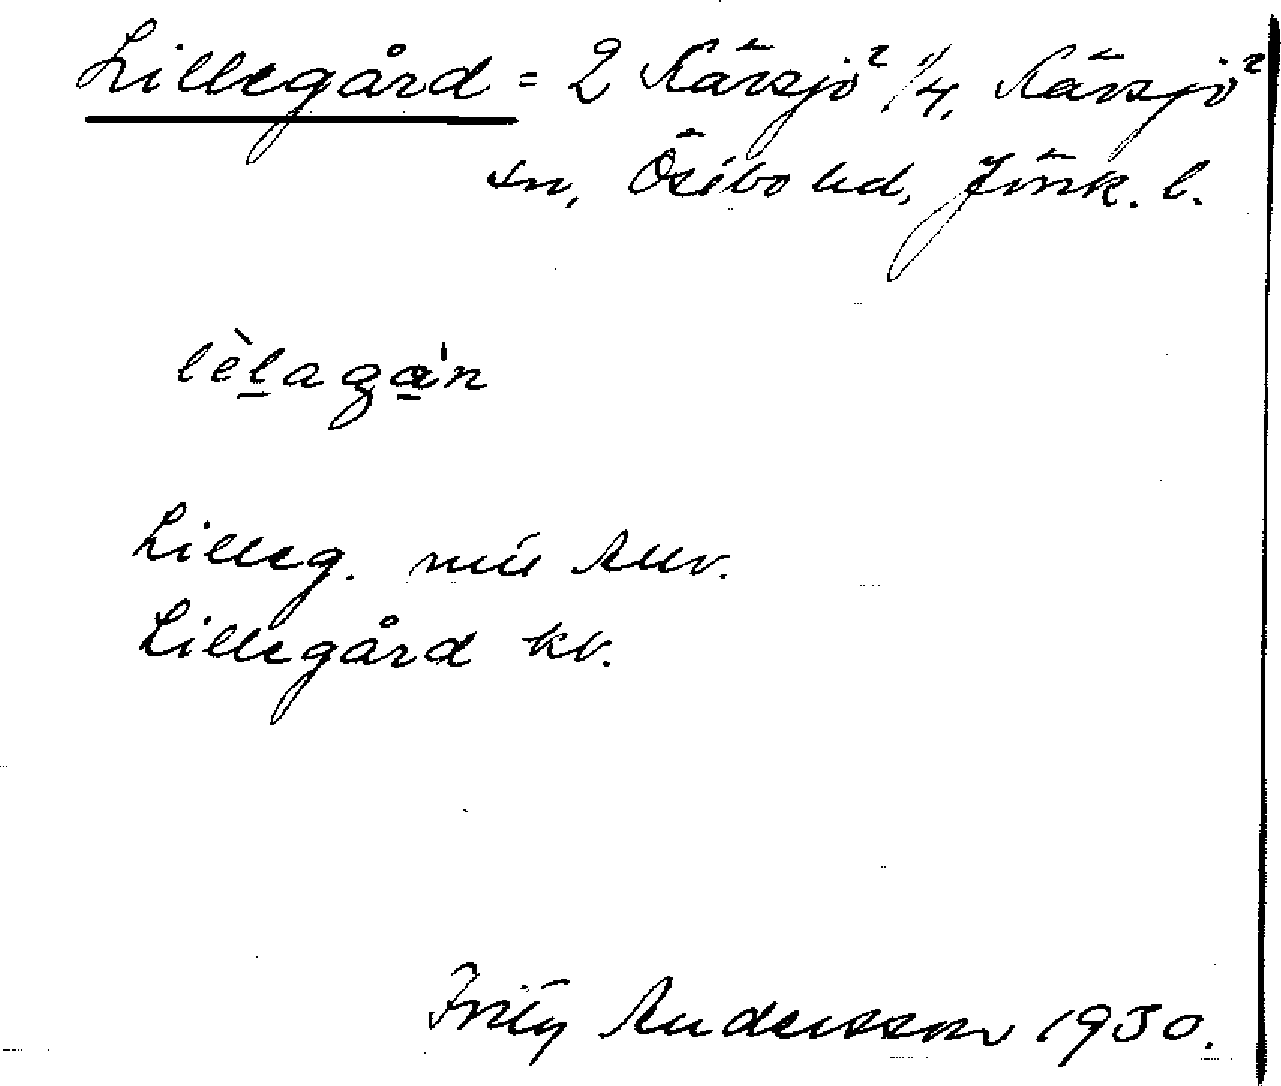 Lillegård = 2 Kävsjö 1/4, Kävsjö
sn, Östbo hd, Jönk. l.
lèl̲aga̲'n
Lilleg.
Lillegård kv.
Fritz Andersson 1930.